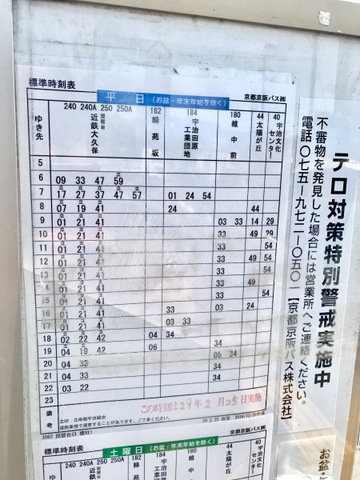 標準時刻表
平　日 (お盆・年末年始を除く)
京都京阪バス㈱
ゆき先
240 240A 250 250A 近鉄大久保
182 緑苑坂
184 宇治田原工業団地
180 維中前
44 太陽が丘
40 宇治文化センター
5
6 09 33 47 59
7 17 27 37 47 57 01 24 54
8 07 19 41 24 44
9 01 21 41 03 33 14 29
10 01 21 41 33 49 29
11 01 21 41 54
12 01 21 41 33 54
13 01 21 41 54
14 01 21 41 33
15 01 21 41 03
16 01 21 41 33
17 01 21 41 33 03
18 02 22 42 33 04
19 04 19 42 34 05
20 06 35
21 04 33
22 03 22
23
備考
この時刻は29年2月25日実施
テロ対策特別警戒実施中
不審物を発見した場合には営業所へご連絡ください。
電話〇七五-九七二-〇五〇
【京都京阪バス株式会社】
お盆
年
標準時刻表
土曜日 (お盆・年末年始を除く)
京都京阪バス㈱
240 240A 250 250A
182
184
180
44 太陽が
40 宇治文化